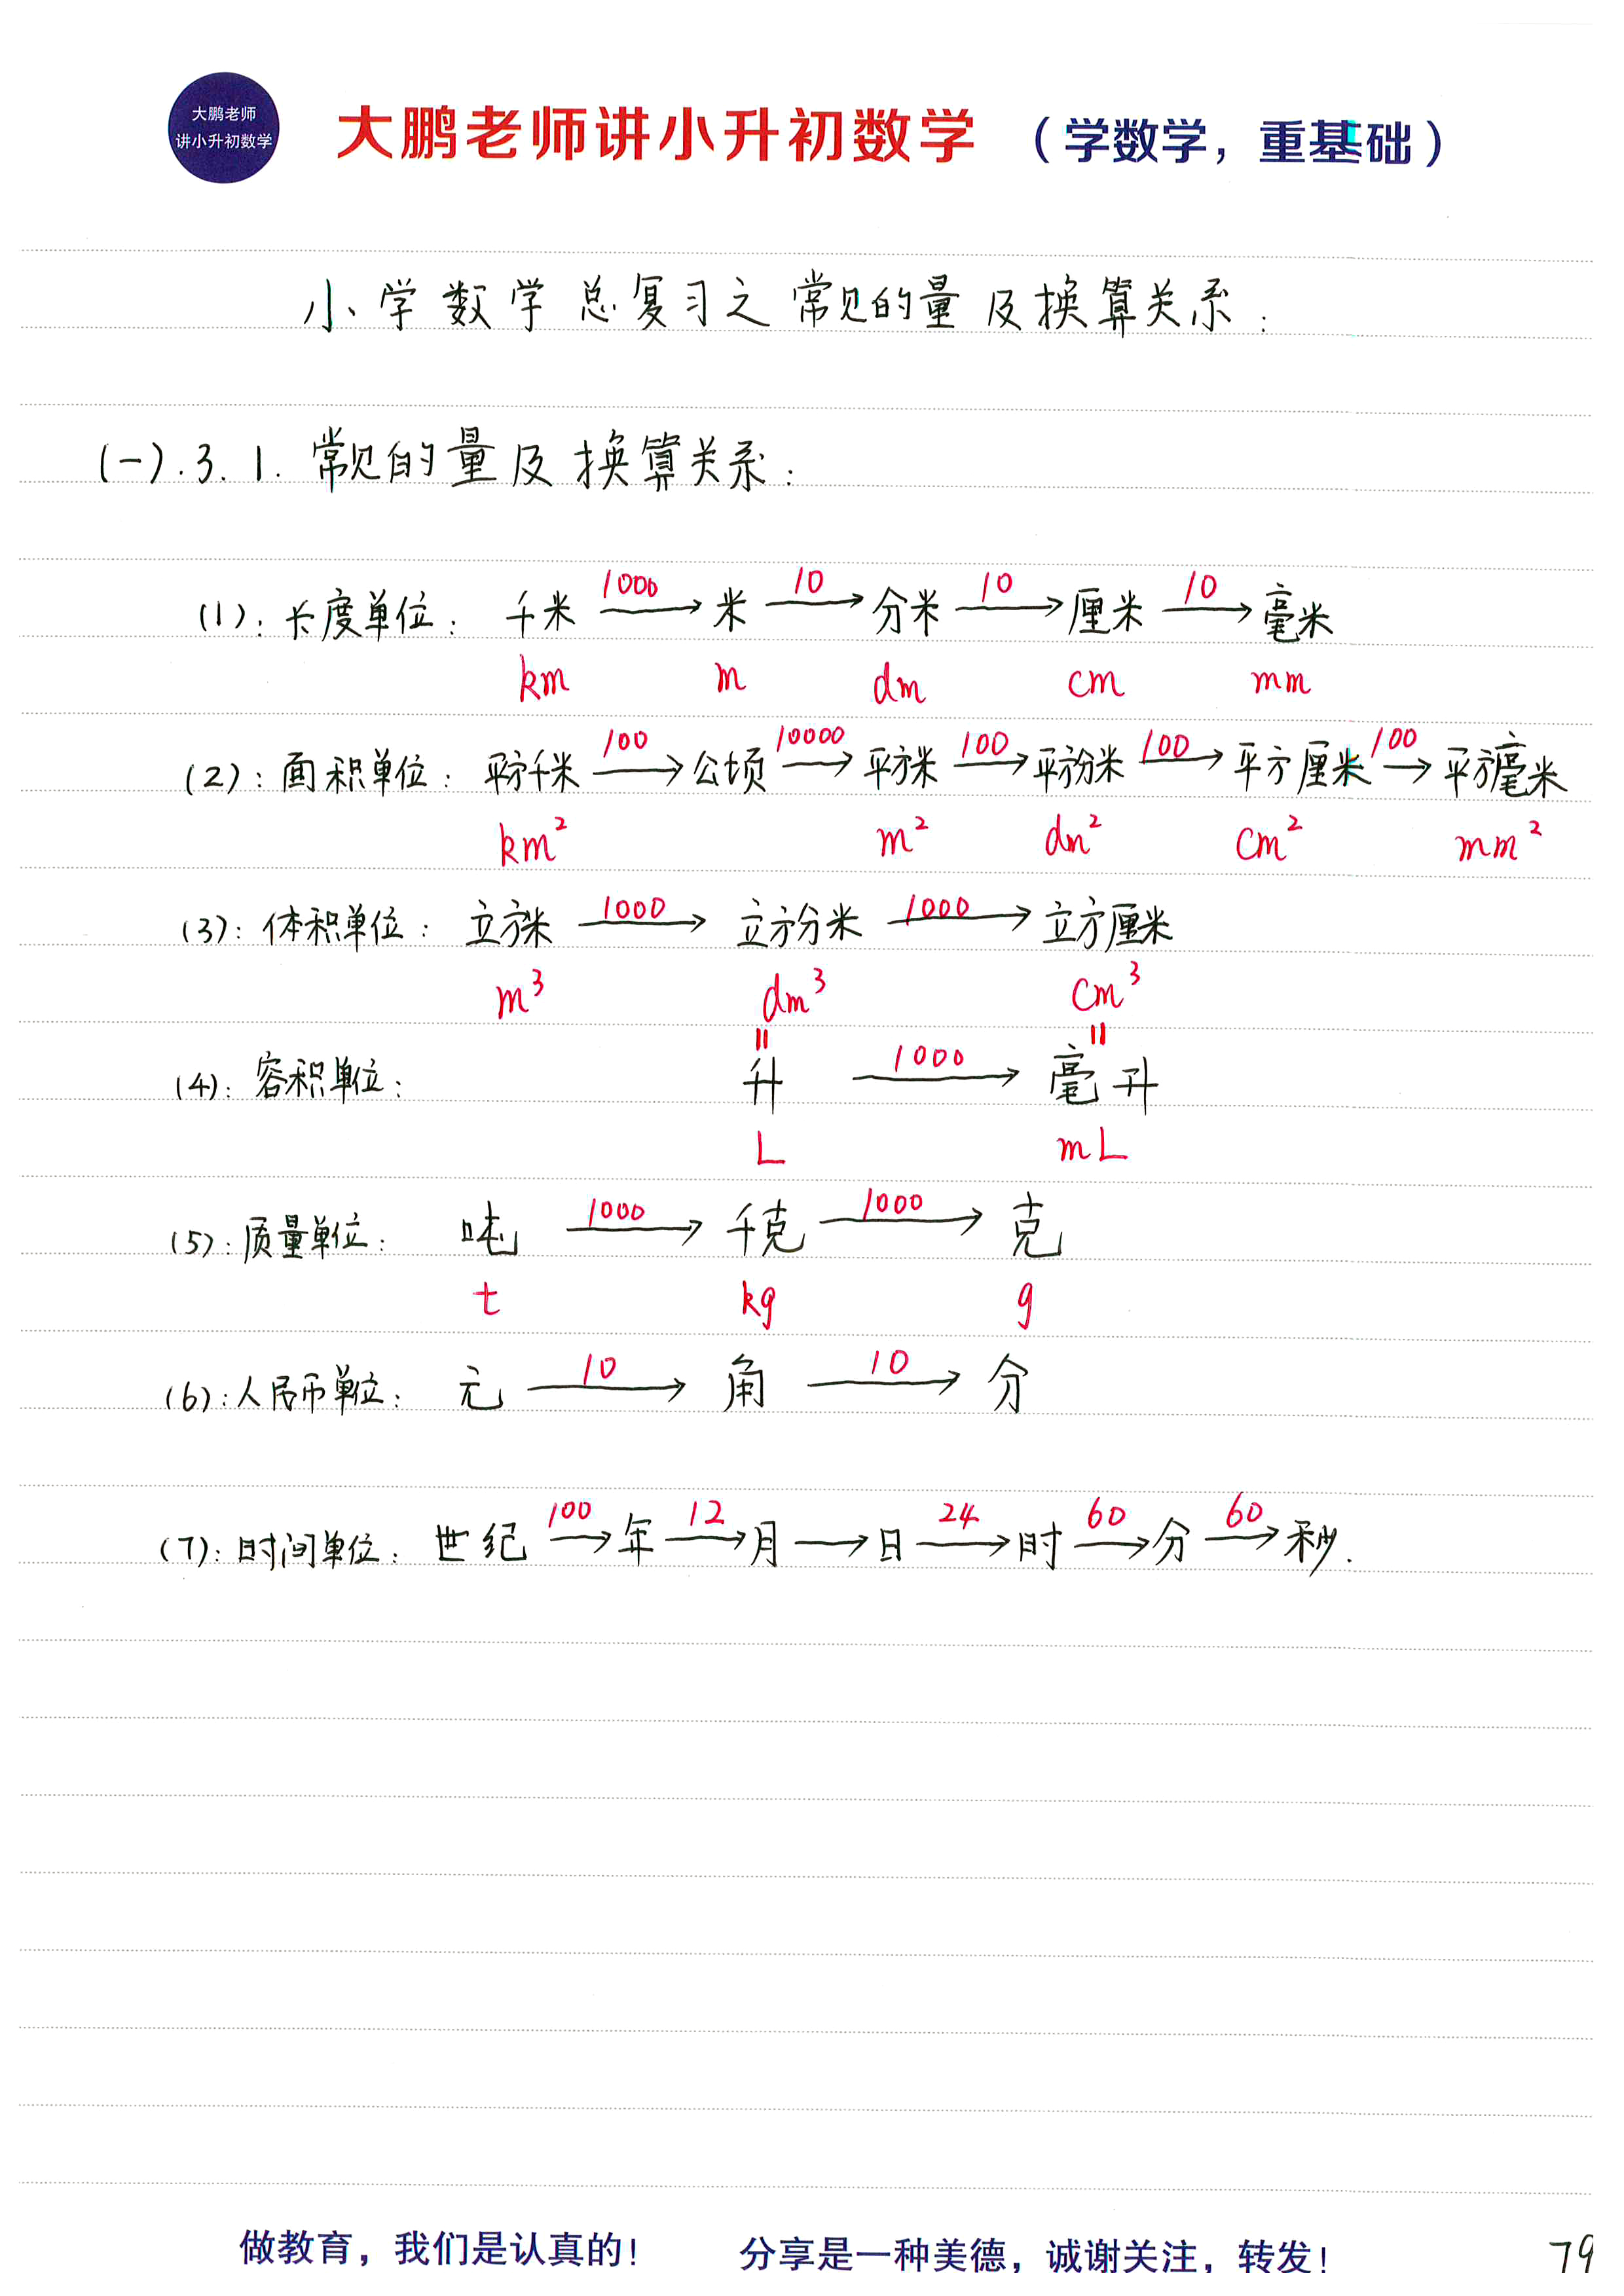 大鹏老师
讲小升初数学
大鹏老师讲小升初数学 （学数学，重基础）
小学数学总复习之常见的量及换算关系：
(一).3.1.常见的量及换算关系：
(1)：长度单位： 千米 1000→ 米 10→ 分米 10→ 厘米 10→ 毫米
km m dm cm mm
(2)：面积单位： 平方千米 100→ 公顷 10000→ 平方米 100→ 平方分米 100→ 平方厘米 100→ 平方毫米
km² m² dm² cm² mm²
(3)：体积单位： 立方米 1000→ 立方分米 1000→ 立方厘米
m³ dm³ cm³
= =
(4)：容积单位： 升 1000→ 毫升
L mL
(5)：质量单位： 吨 1000→ 千克 1000→ 克
t kg g
(6)：人民币单位： 元 10→ 角 10→ 分
(7)：时间单位： 世纪 100→ 年 12→ 月 → 日 24→ 时 60→ 分 60→ 秒.
做教育，我们是认真的！ 分享是一种美德，诚谢关注，转发！ 79